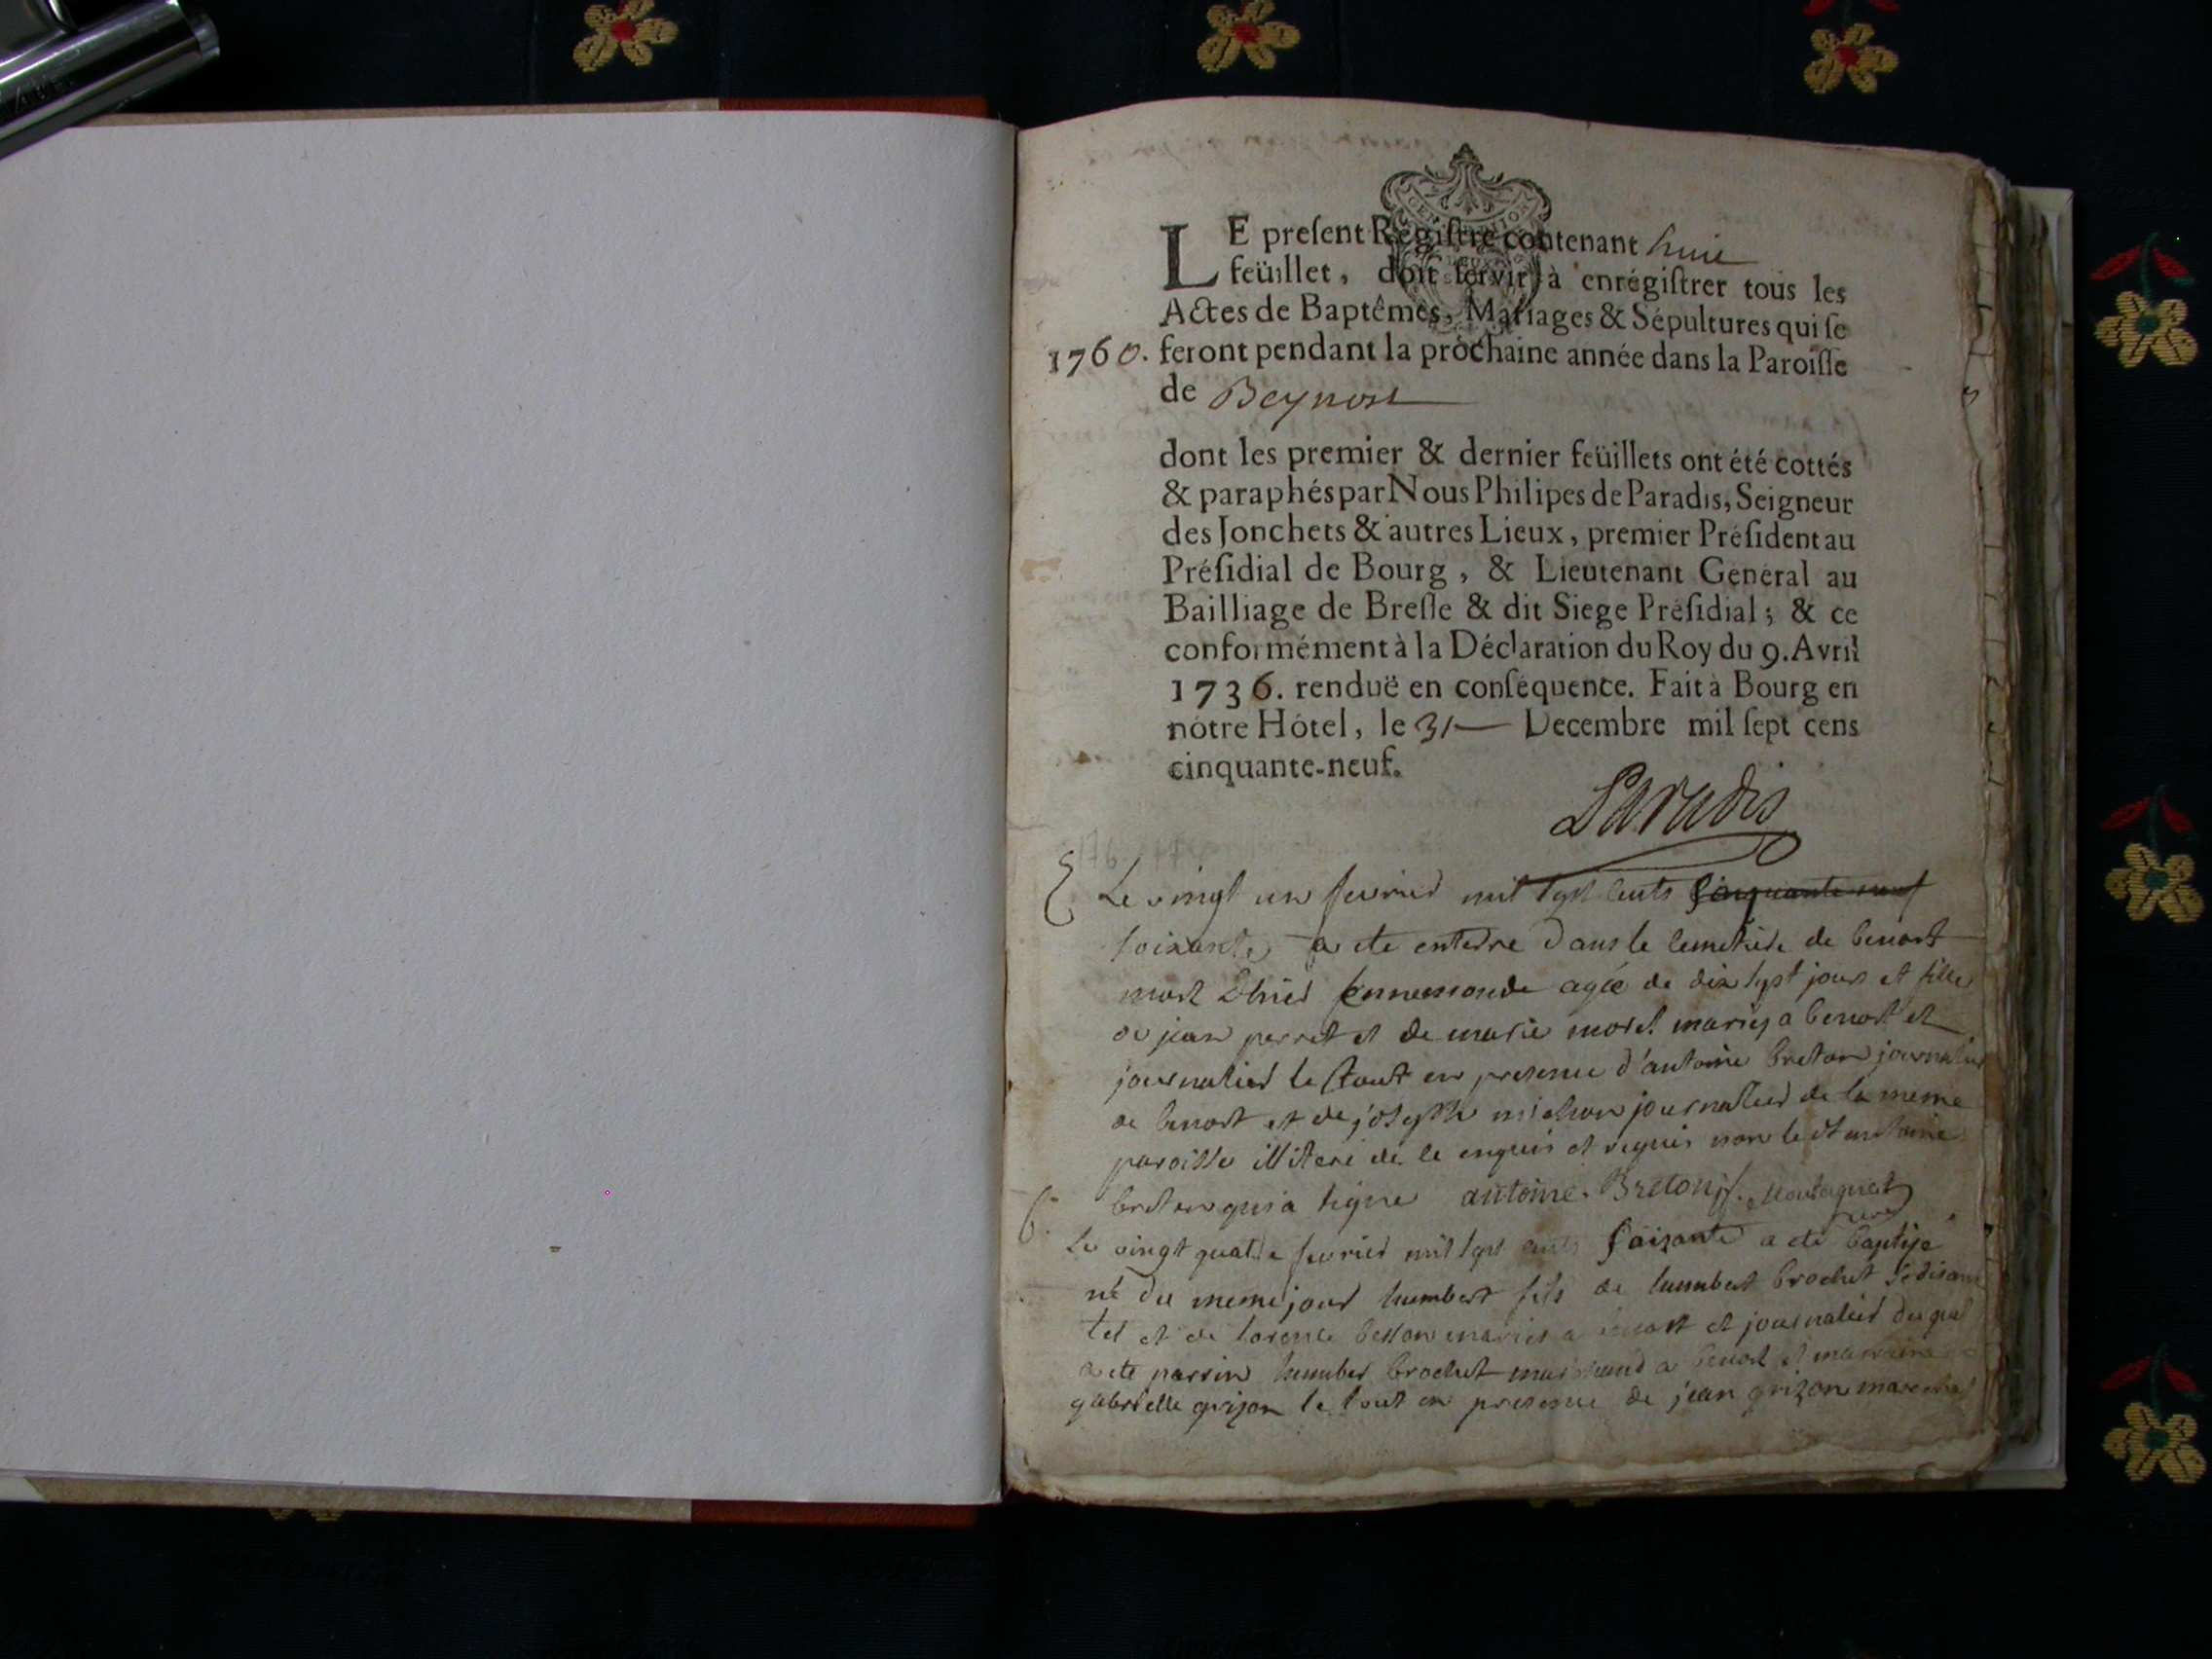 LE preſent Regiſtre contenant huit
feüillet, doit ſervir à enrégiſtrer tous les
Actes de Baptêmes, Mariages & Sépultures qui ſe
1760. feront pendant la prochaine année dans la Paroiſſe
de Beynost
dont les premier & dernier feüillets ont été cottés
& paraphés par Nous Philipes de Paradis, Seigneur
des Jonchets & autres Lieux, premier Préſident au
Préſidial de Bourg, & Lieutenant Général au
Bailliage de Breſſe & dit Siege Préſidial; & ce
conformément à la Déclaration du Roy du 9. Avril
1736. renduë en conſéquence. Fait à Bourg en
nôtre Hôtel, le 31 Decembre mil ſept cens
cinquante-neuf.
Paradis
E Le vingt un fevrier mil sept cents cinquante neuf
soixante a ete enterre dans le cemetiere de benost
ennemonde agée de dix sept jours et fille
de jean perret et de marie morel mariés a benost et
journalier le tout en presence d'antoine breton journalier
de benost et de joseph michon journalier de la meme
paroisse illiteré de ce enquis et requis non ledt antoine
breton qui a signe antoine Breton
B Le vingt quatre fevrier mil sept cents soixante a ete baptisé
né du meme jour humbert fils de humbert brochet se disant
tel et de besson mariés a benost et journalier duquel
a ete parrin humber brochet marchand a benost et marraine
gabrielle grizon le tout en presence de jean grizon marechal